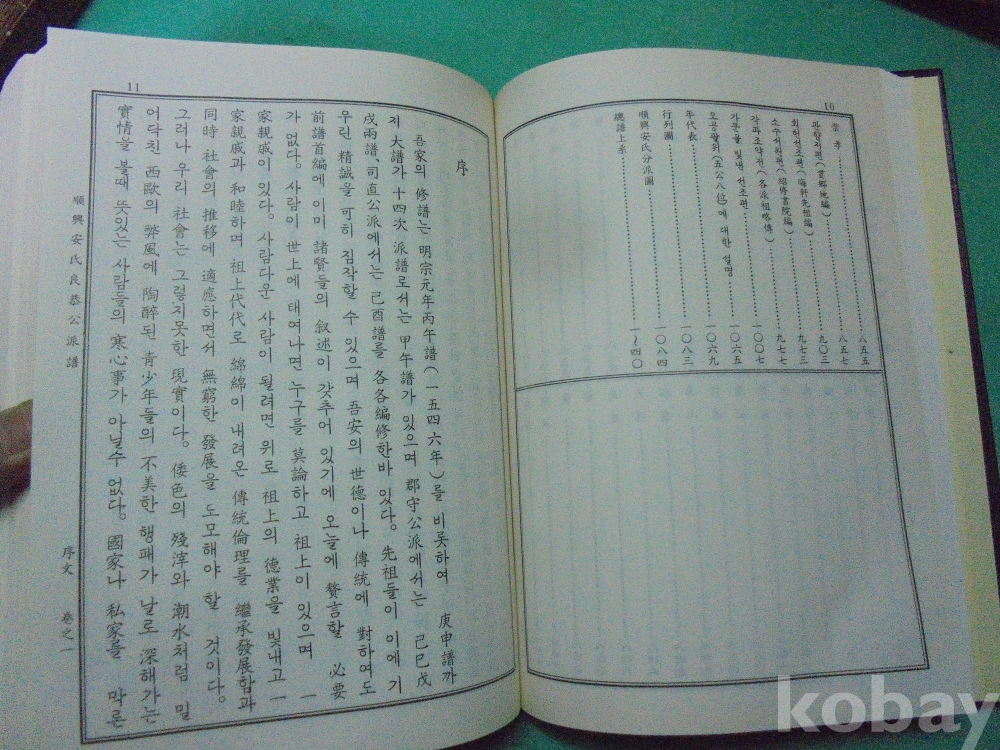 10
숭조
八五五
八五七
관향지편(貫鄕地編)
九〇三
회헌선조편(晦軒先祖編)
九七三
소수서원편(紹修書院編)
九七七
각파조약전(各派祖略傳)
一〇〇七
가문을 빛낸 선조편
一〇六五
오공팔위(五公八位)에 대한 설명
一〇六九
年代表
一〇八三
行列圖
一〇八四
順興安氏分派圖
一~四〇
總譜上系
11
序
吾家의 修譜는 明宗元年丙午譜(一五四六年)를 비롯하여 庚申譜까
지 大譜가 十四次 派譜로서는 甲午譜가 있으며 郡守公派에서는 己巳戊
戌兩譜 司直公派에서는 己酉譜를 各各編修한바 있다. 先祖들이 이에 기
우린 精誠을 可히 짐작할 수 있으며 吾安의 世德이나 傳統에 對하여도
前譜首編에 이미 諸賢들의 叙述이 갖추어 있기에 오늘에 贅言할 必要
가 없다. 사람이 世上에 태여나면 누구를 莫論하고 祖上이 있으며 一
家親戚이 있다. 사람다운 사람이 될려면 위로 祖上의 德業을 빛내고 一
家親戚과 和睦하며 祖上代代로 綿綿이 내려온 傳統倫理를 繼承發展함과
同時 社會의 推移에 適應하면서 無窮한 發展을 도모해야 할 것이다.
그러나 우리 社會는 그렇지못한 現實이다. 倭色의 殘滓와 潮水처럼 밀
어닥친 西歐의 弊風에 陶醉된 靑少年들의 不美한 행패가 날로 深해가는
實情을 볼때 뜻있는 사람들의 寒心事가 아닐수 없다. 國家나 私家를 막론
順興安氏良恭公派譜 序文 卷之一
kobay